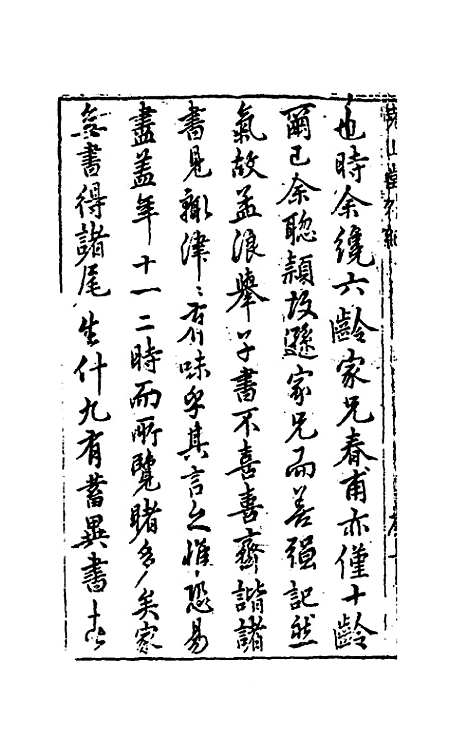 也時余纔六齡家兄春甫亦僅十齡
爾已余聰穎故遜家兄而善强記然
氣故孟浪舉子書不喜喜齊諧諸
書見輙津〻有味乎其言之惟〻恐易
盡蓋年十一二時而所覽睹多矣家
無書得諸尾生什九有蓄異書